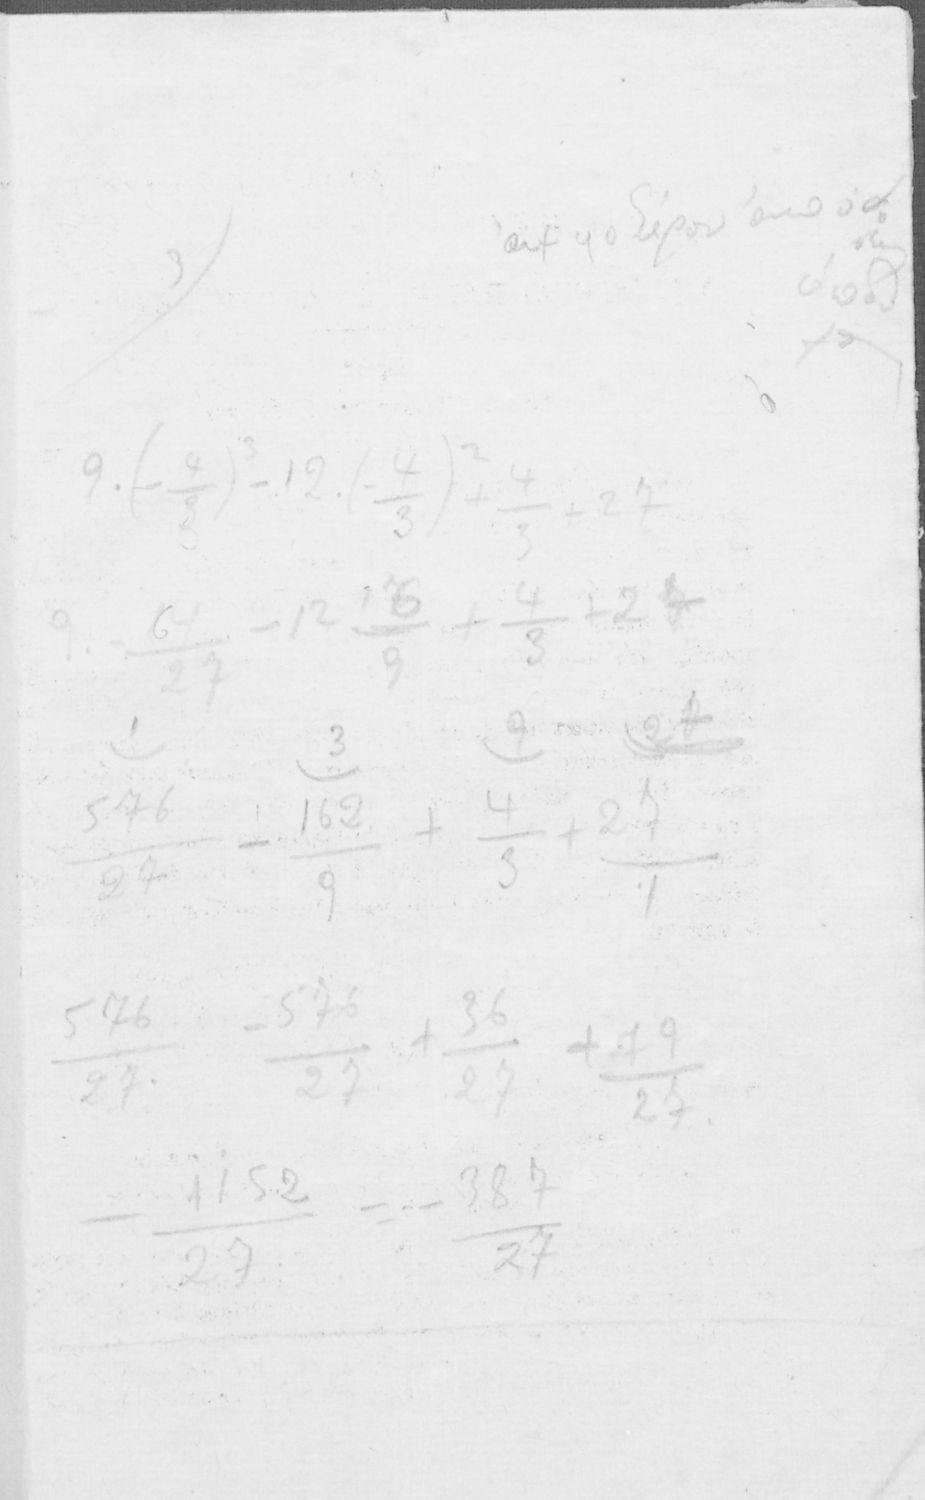 3)
9·(-4/3)³ - 12·(-4/3)² + 4/3 + 27
9·-64/27 - 12 16/9 + 4/3 + 27
1 3 9 27
576/27 - 162/9 + 4/3 + 27/1
576/27 - 576/27 + 36/27 + 19/27
- 1152/27 = - 387/27